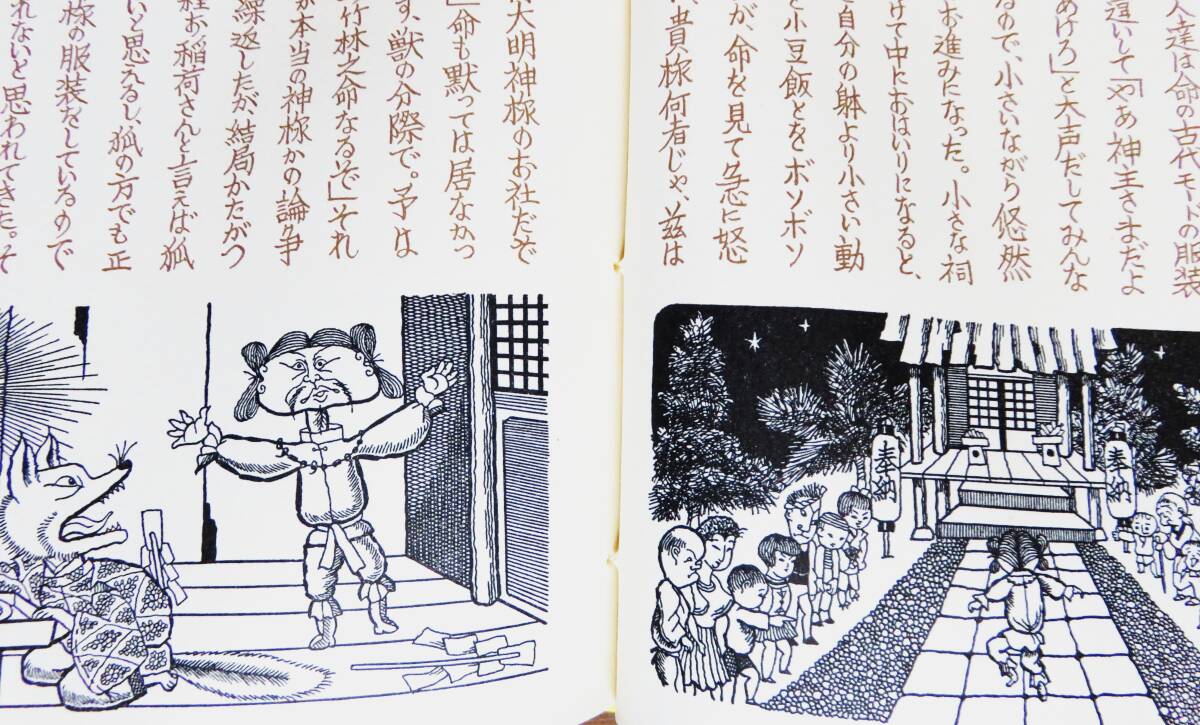 人達は命の古代モードの服装
違いして「やあ神主さまだよ
あけろ」と大声だしてみんな
るので、小さいながら悠然
お進みになった。小さな祠
けて中におはいりになると、
自分の躰より小さい動
と小豆飯とをボソボソ
が、命を見て急に怒
、貴様何者じゃ、玆は
大明神様のお社だぞ
」命も黙っては居なかっ
す、獣の分際で。予は
竹林之命なるぞ」それ
が本当の神様かの論争
繰返したが結局かたがつ
程お稲荷さんと言えば狐
いと思えるし、狐の方でも正
様の服装をしているので
れないと思われてきた。そ
奉納
奉納